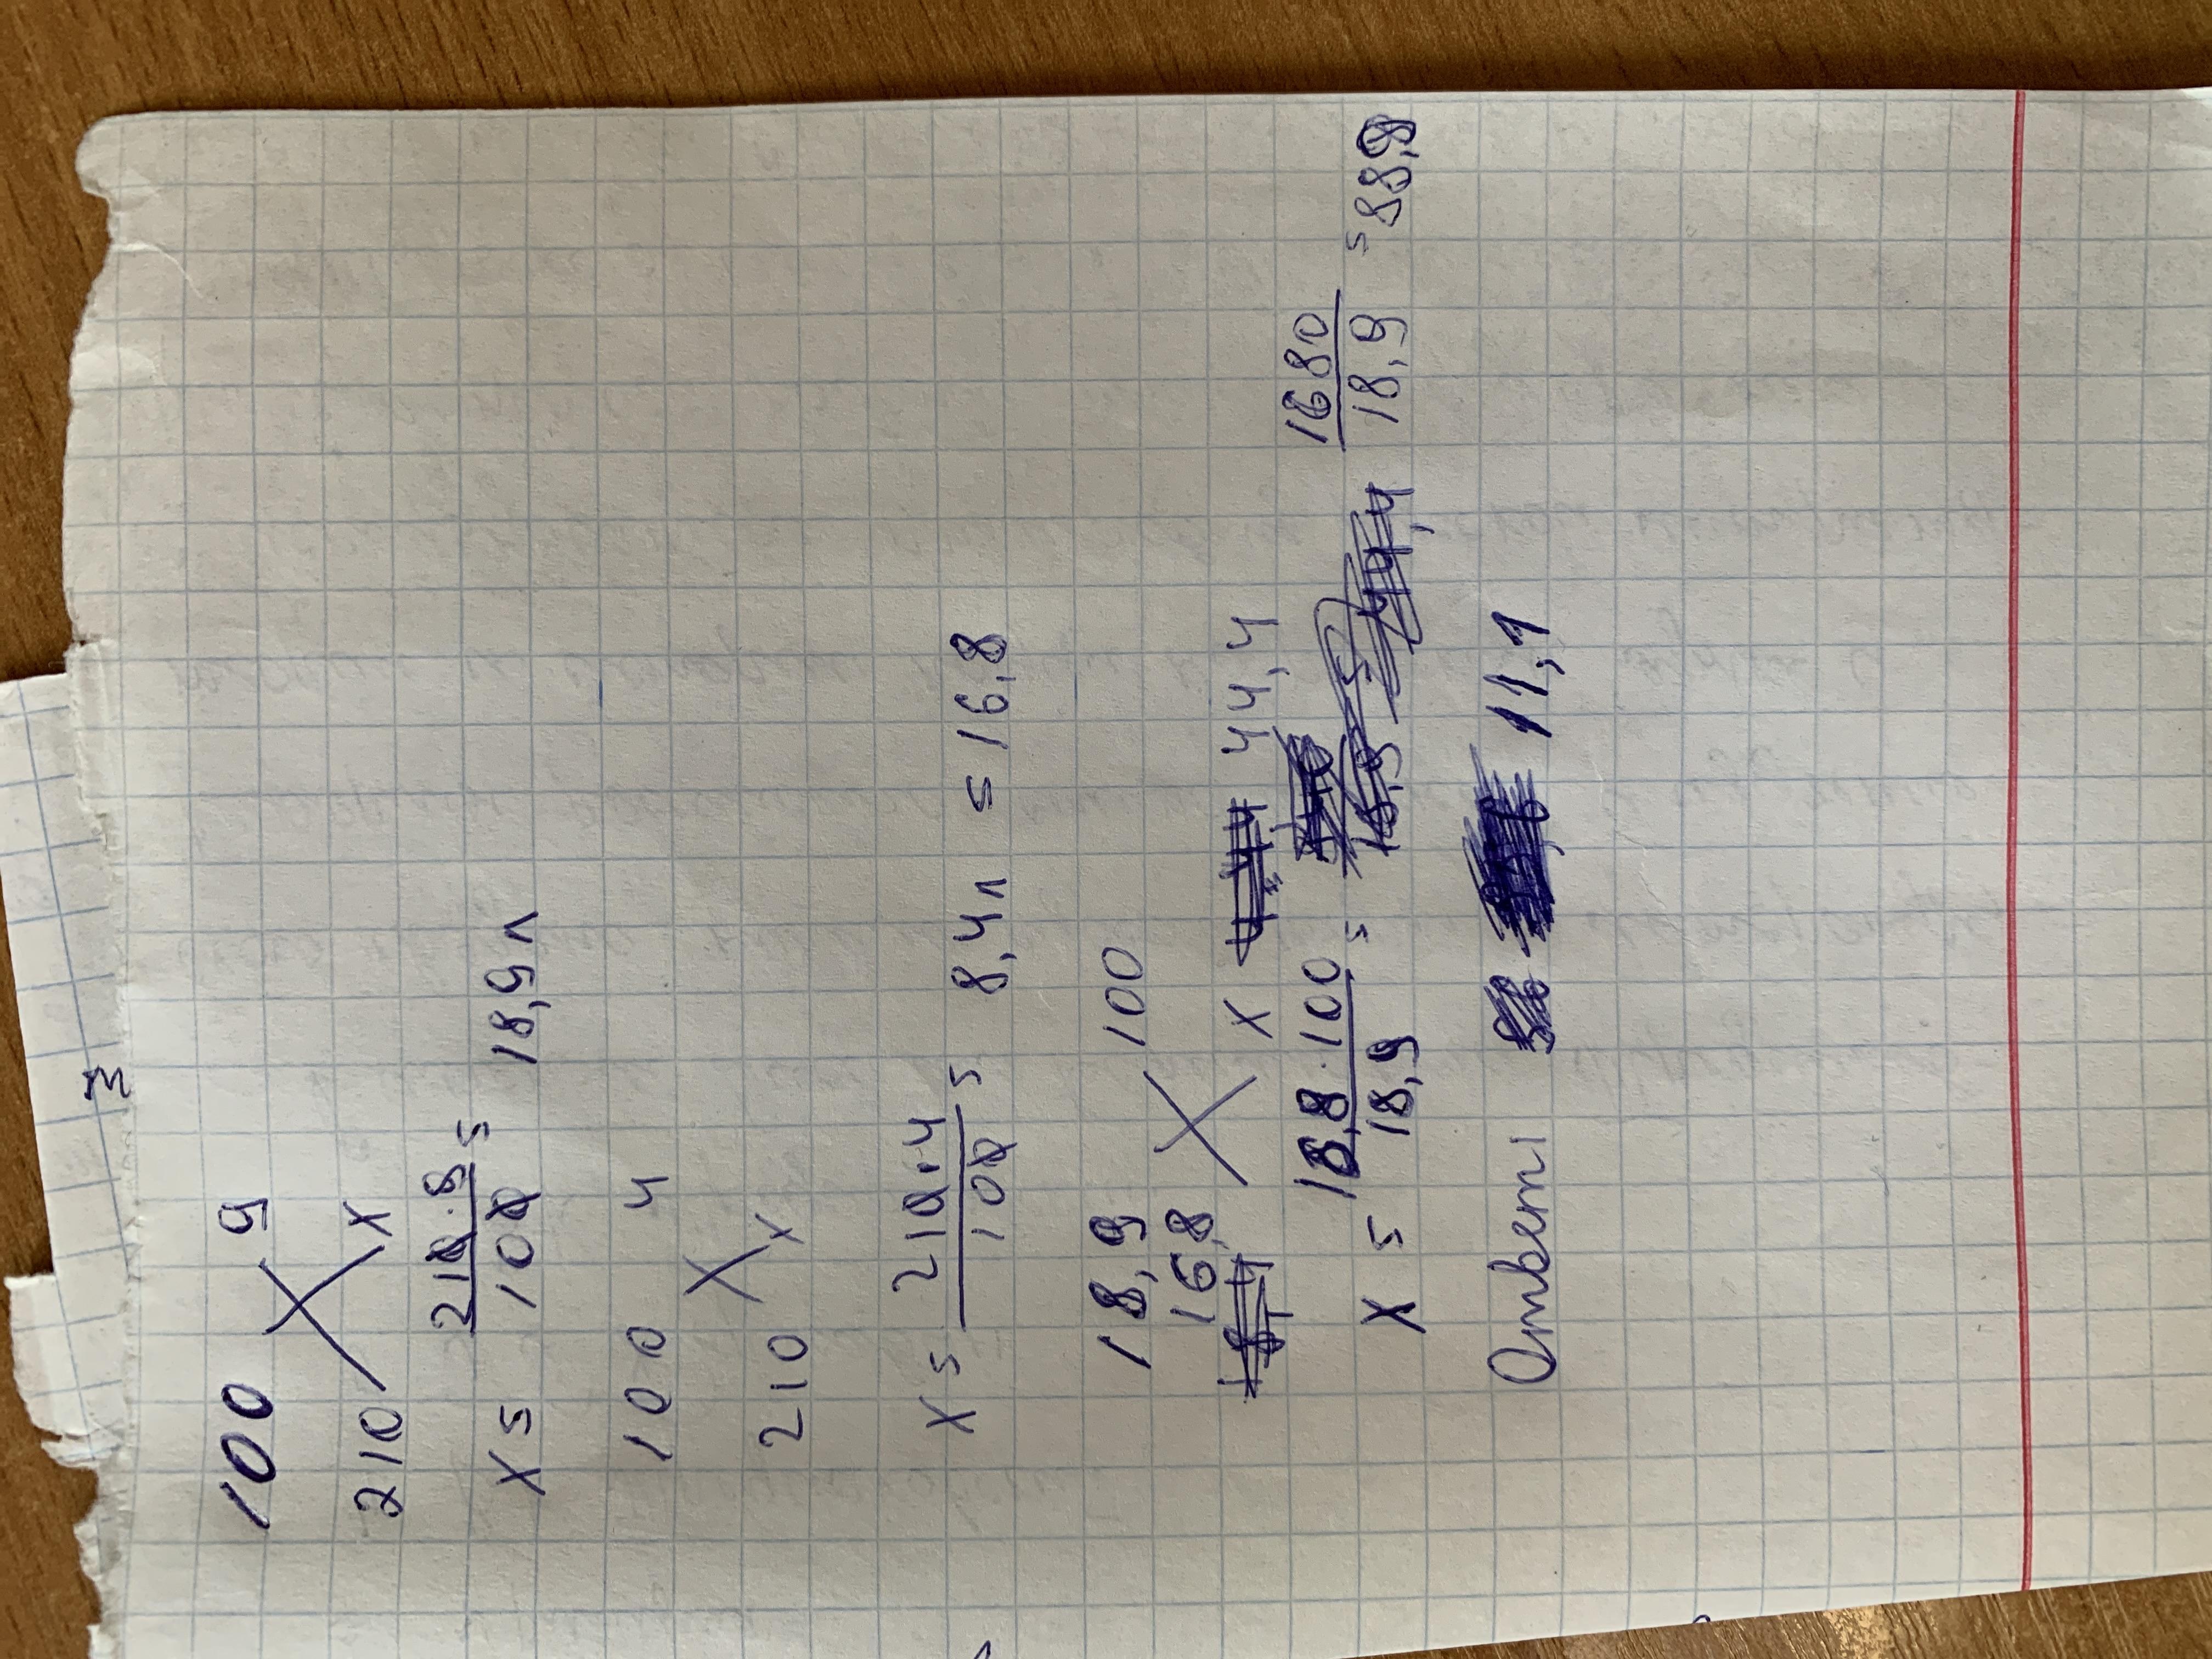 100 9
210 x
x = 210·9 / 100 = 18,9л
100 4
210 x
x = 210·4 / 100 = 8,4л = 16,8
18,9 100
16,8 x 44,4
x = 16,8·100 / 18,9 = 1680 / 18,9 = 88,9
Ответ 11,1